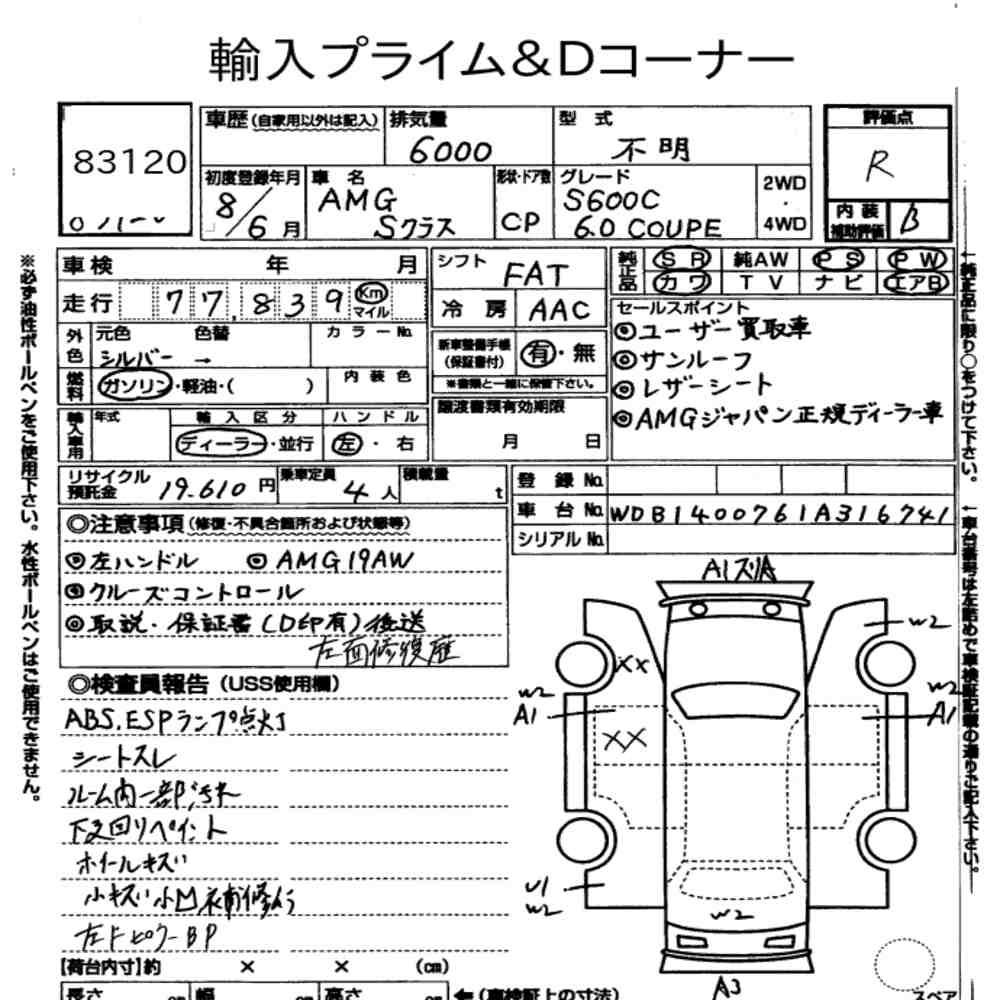 輸入プライム&Dコーナー
83120
車歴(自家用以外は記入)
排気量
6000
型 式
不明
評価点
R
初度登録年月
8/6月
車 名
AMG
Sクラス
形状・ドア数
CP
グレード
S600C
6.0 COUPE
2WD
・
4WD
内装
補助評価
B
※必ず油性ボールペンをご使用下さい。水性ボールペンはご使用できません。
車検 年 月
走行 77,839 Km マイル
シフト FAT
冷房 AAC
純正品
SR 純AW PS PW
カワ TV ナビ エアB
外色
元色 色替
シルバー →
カラーNo.
燃料
ガソリン・軽油・( )
内装色
新車整備手帳
(保証書付)
有・無
※書類と一緒に保管下さい。
セールスポイント
◎ユーザー買取車
◎サンルーフ
◎レザーシート
◎AMGジャパン正規ディーラー車
輸入車用
年式
輸入区分
ディーラー・並行
ハンドル
左・右
譲渡書類有効期限
月 日
リサイクル
預託金
19.610円
乗車定員
4人
積載量
t
登録No.
車台No. WDB1400761A316741
シリアルNo.
◎注意事項(修復・不具合箇所および状態等)
◎左ハンドル ◎AMG19AW
◎クルーズコントロール
◎取説・保証書(D印有)後送
左面修復歴
◎検査員報告(USS使用欄)
ABS.ESPランプ点灯
シートスレ
ルーム内一部汚れ
下廻りペイント
ホイールキズ
小キズ小凹補修跡
左FピラーBP
A1スリA
W2
XX
W2
A1
W2
A1
XX
U1
W2
W2
A3
スペア
【荷台内寸】約 × × (cm)
長さ cm 幅 cm 高さ cm ←(車検証上の寸法)
↑純正品に限り○をつけて下さい。
↑車台番号は左詰めで車検証記載の通りご記入下さい。